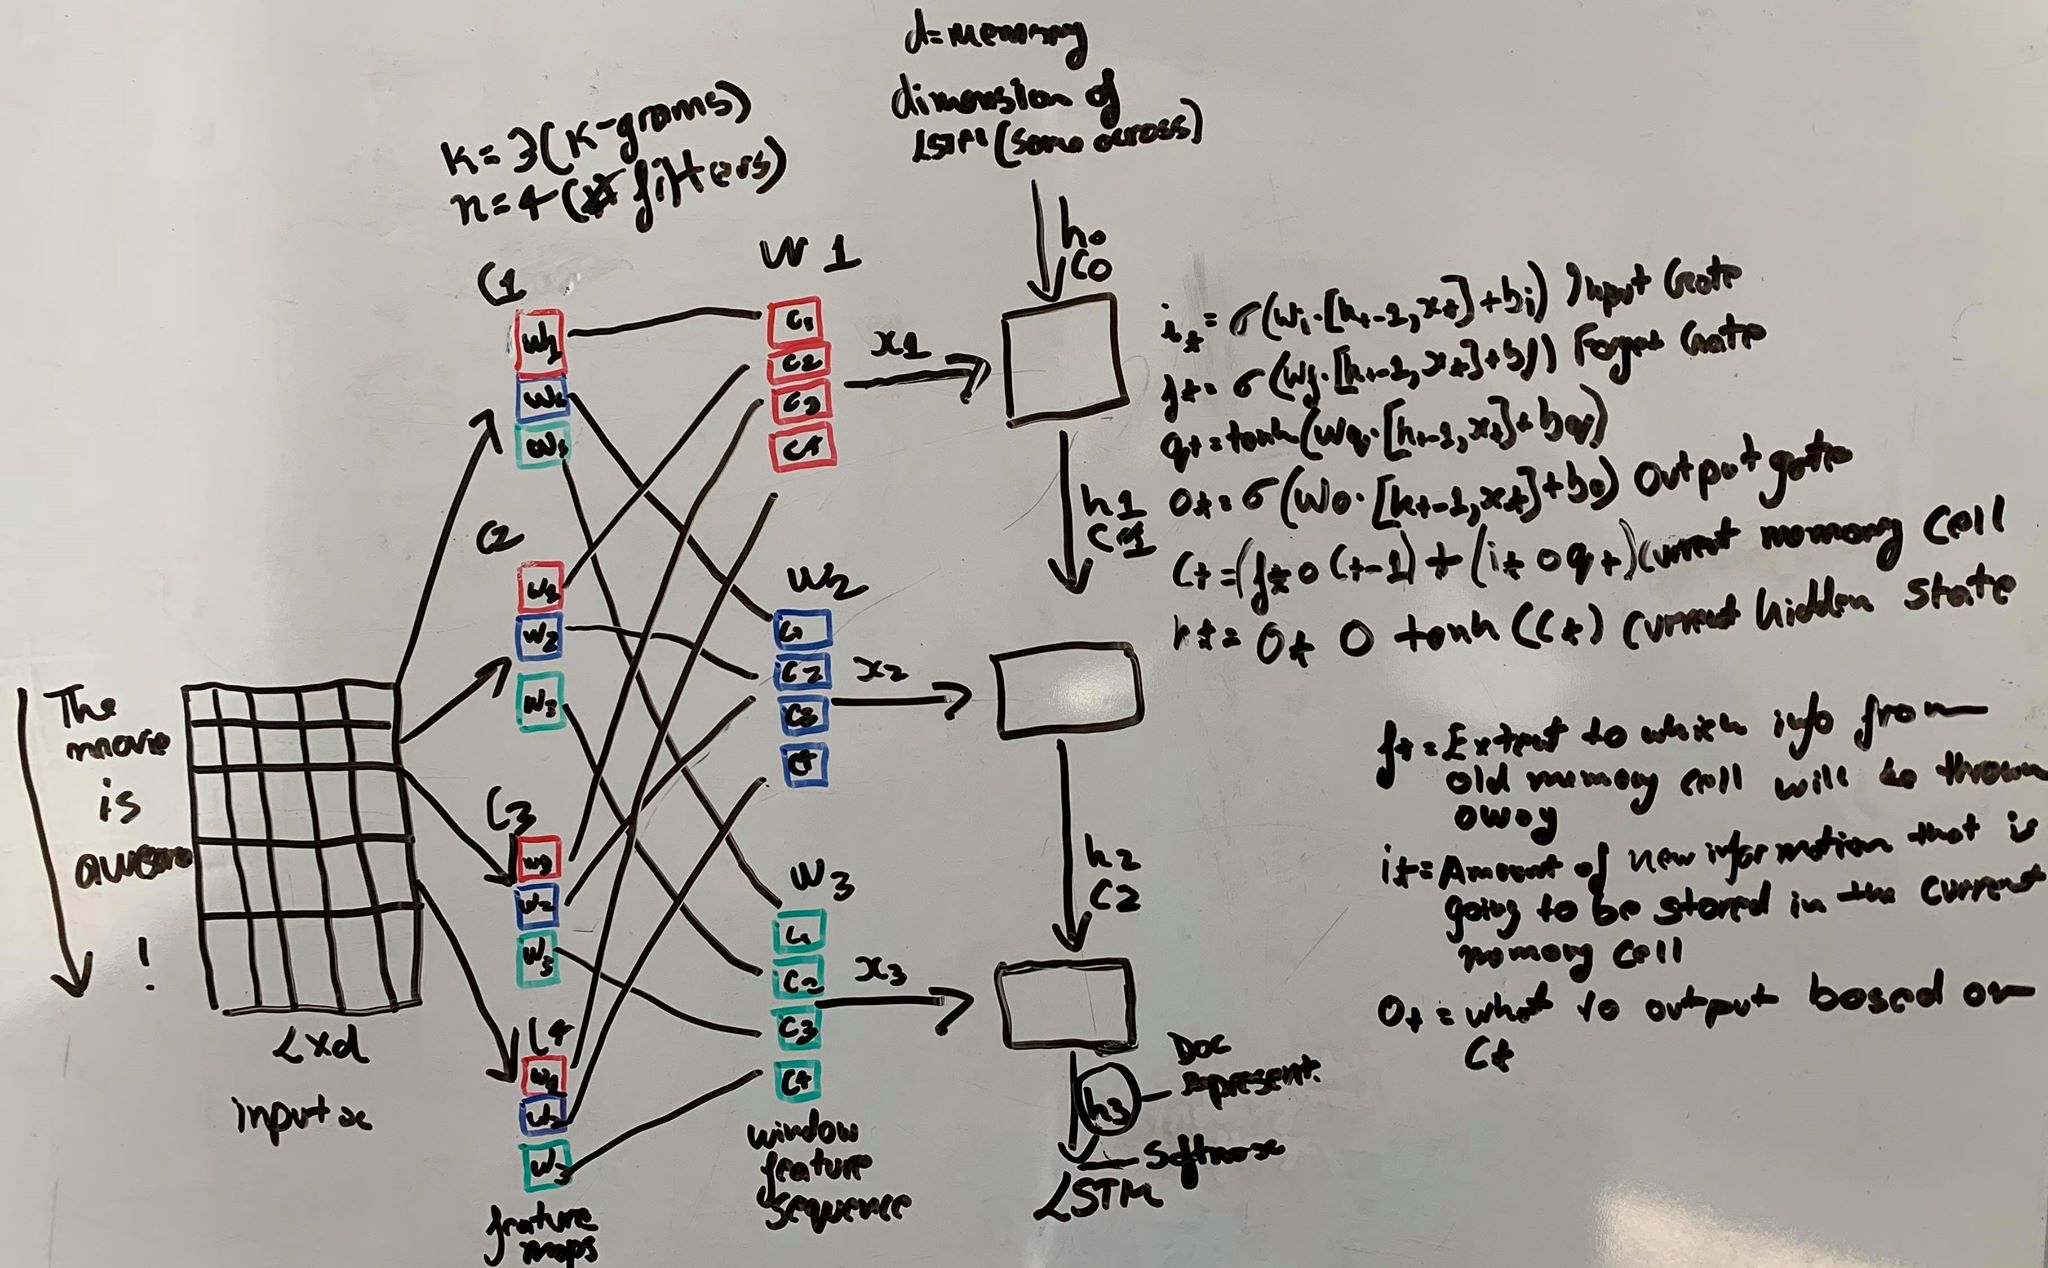 d=memory
dimension of
LSTM (same across)
k=3(K-grams)
n=4(# filters)
h0
C0
C1
W1
W2
W3
C2
W1
W2
W3
C3
W1
W2
W3
C4
W1
W2
W3
feature
maps
W1
C1
C2
C3
C4
x1
W2
C1
C2
C3
C4
x2
W3
C1
C2
C3
C4
x3
window
feature
sequence
h1
C1
h2
C2
h3
Doc
represent.
Softmax
LSTM
The
movie
is
awesome
!
Lxd
input x
it = σ(Wi·[ht-1,xt]+bi) Input Gate
ft = σ(Wf·[ht-1,xt]+bf) Forget Gate
qt = tanh(Wq·[ht-1,xt]+bq)
Ot = σ(Wo·[ht-1,xt]+bo) Output gate
Ct = (ft o Ct-1) + (it o qt) Current memory cell
ht = Ot o tanh (Ct) current hidden state
ft = Extent to which info from
old memory cell will be thrown
away
it = Amount of new information that is
going to be stored in the current
memory cell
Ot = what to output based on
Ct